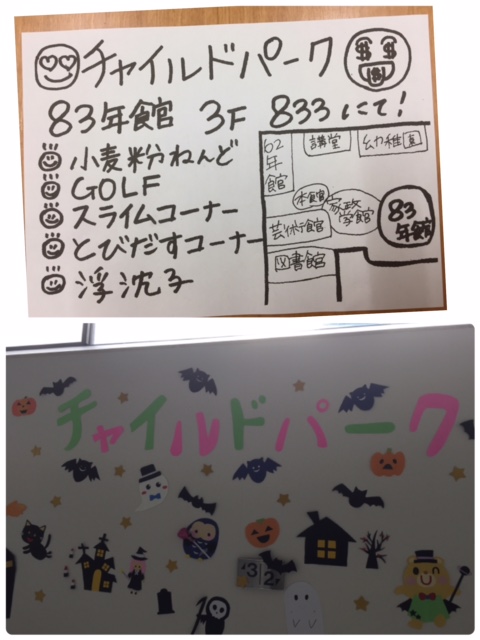 チャイルドパーク
83年館 3F 833にて!
小麦粉ねんど
GOLF
スライムコーナー
とびだすコーナー
浮沈子
62年館
講堂
幼稚園
本館
家政学館
83年館
芸術館
図書館
チャイルドパーク
32